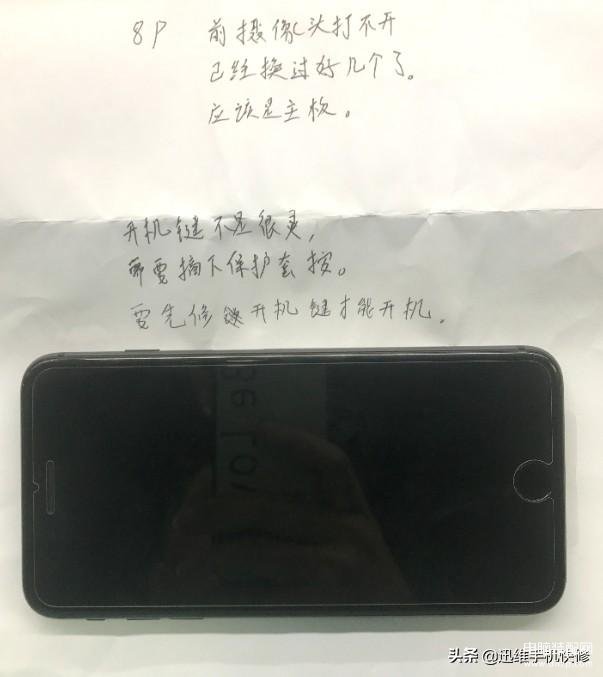 8P 前摄像头打不开
已经换过好几个了。
应该是主板。
开机键不是很灵,
需要摘下保护套按。
要先修换开机键才能开机.
头条 @迅维手机快修
电脑装配网